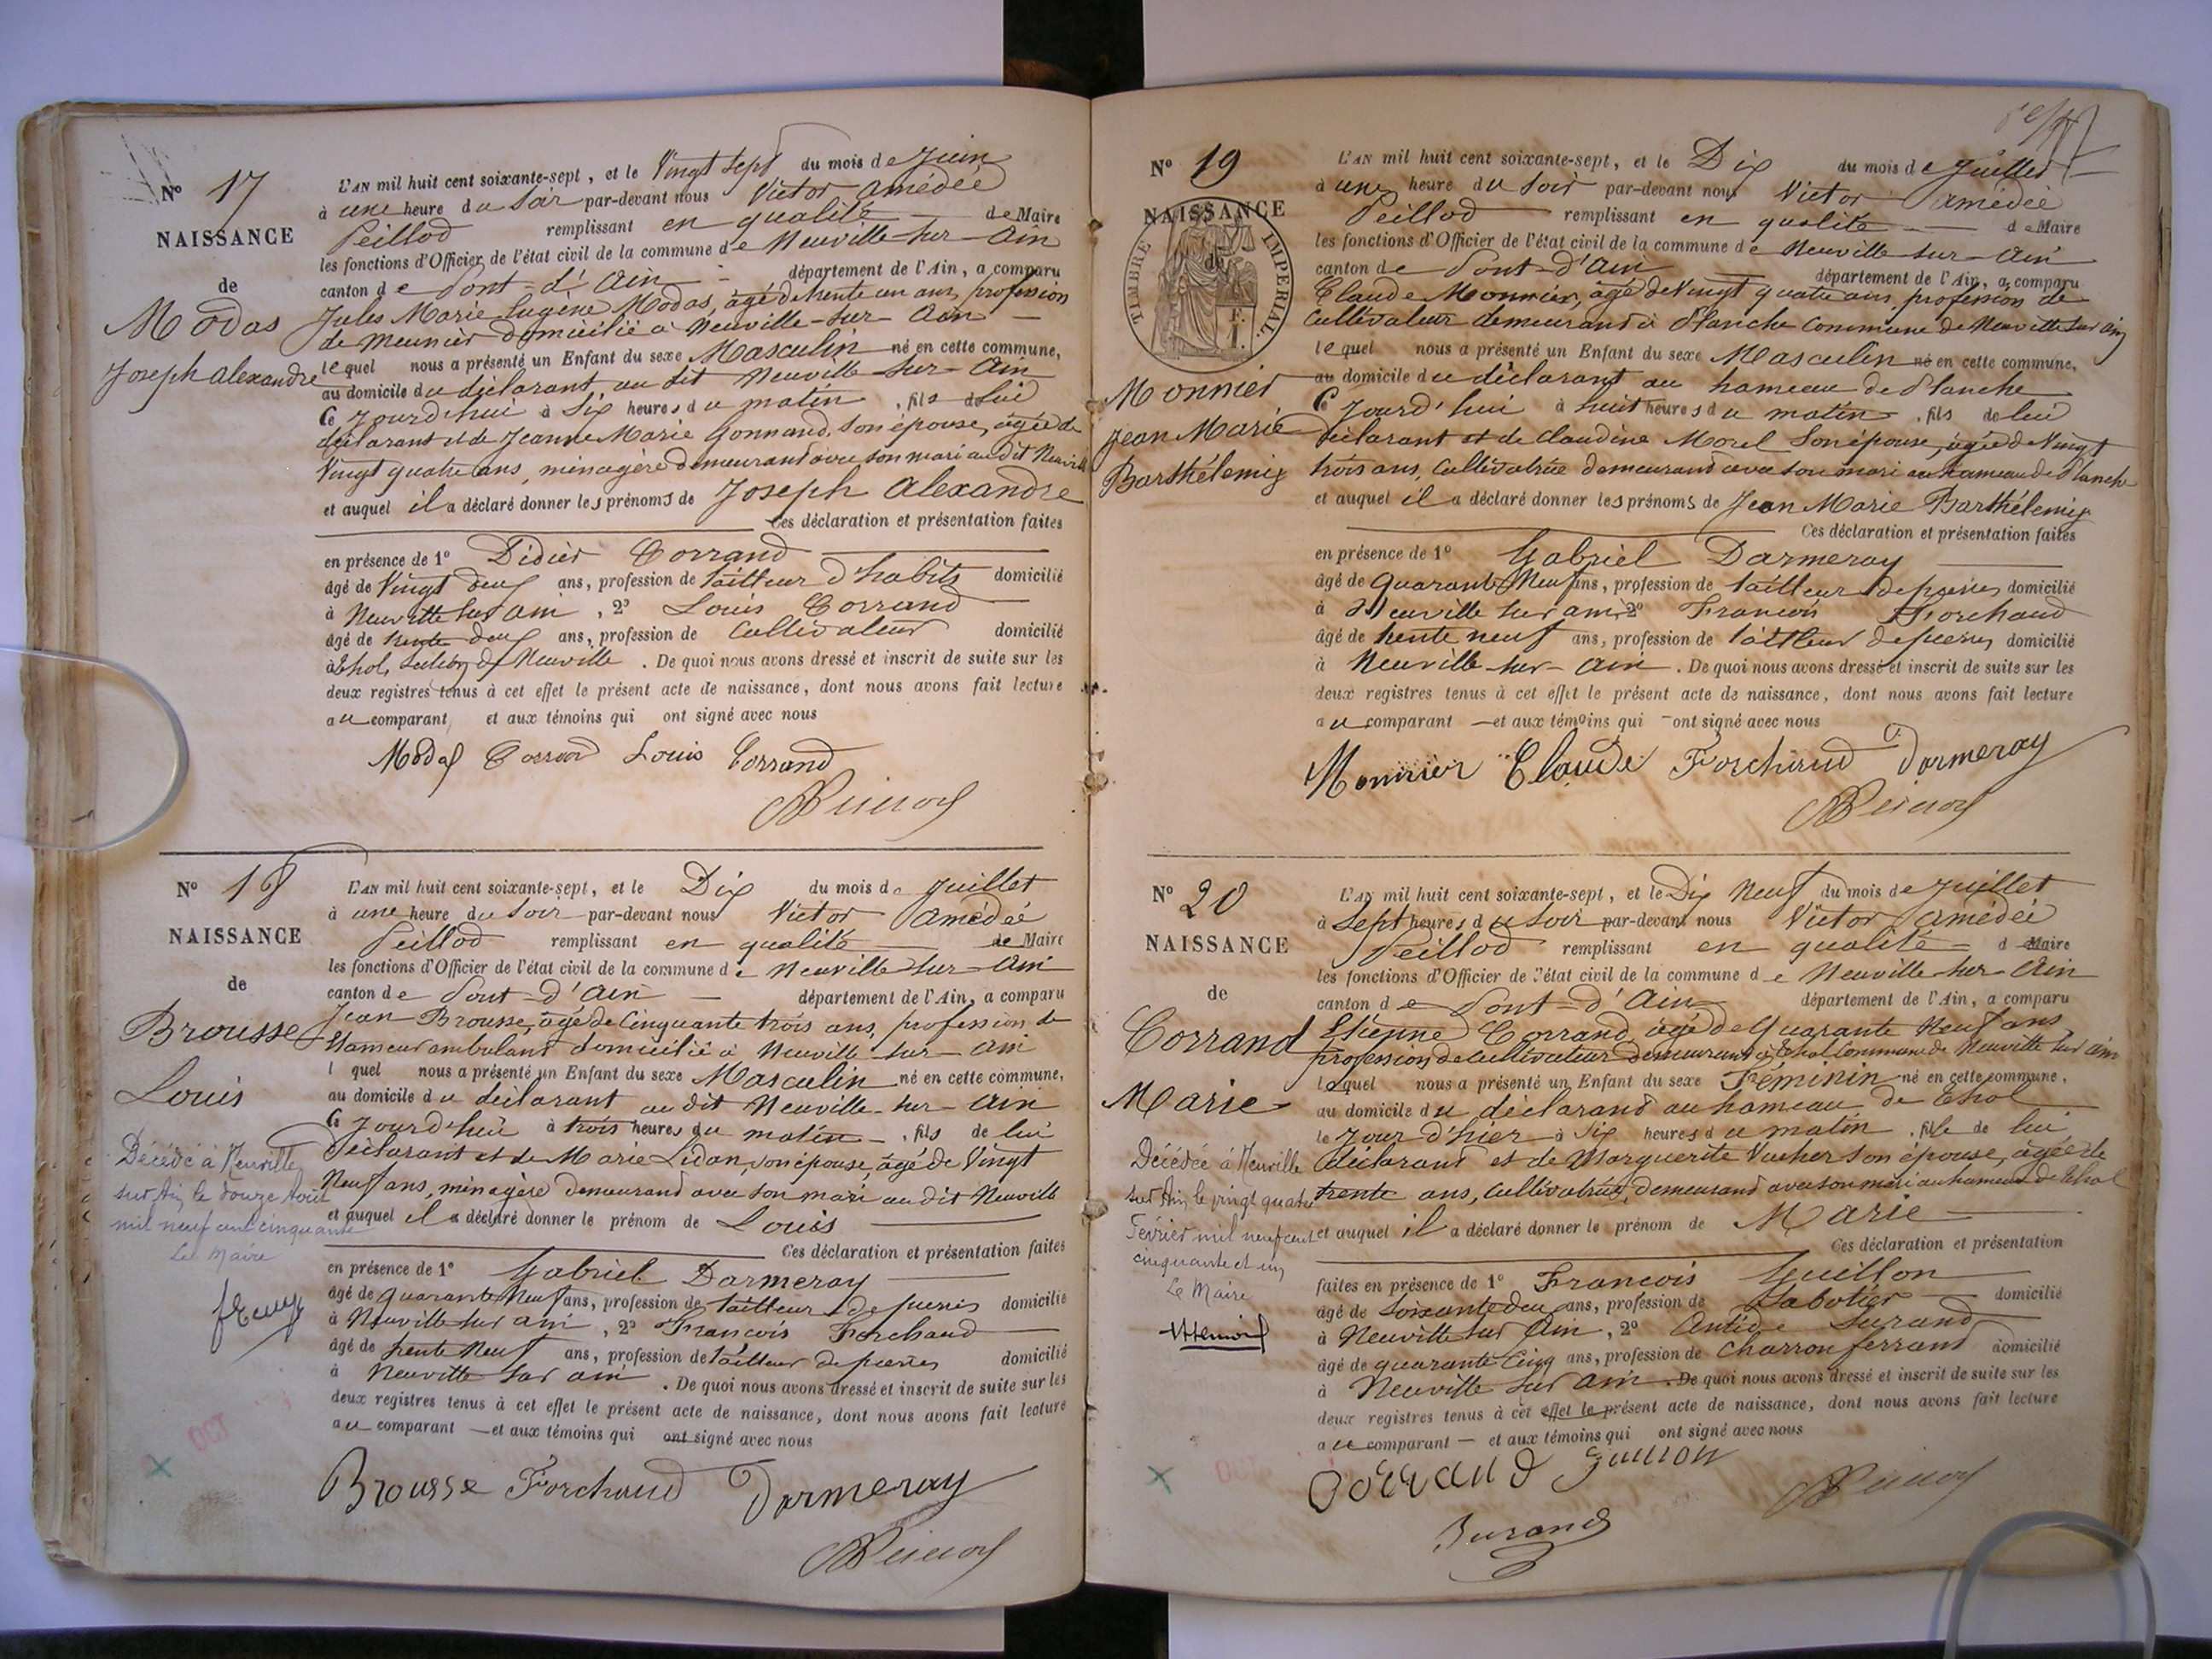 N° 17
NAISSANCE
de
Modas
Joseph Alexandre
L'AN mil huit cent soixante-sept, et le Vingt Sept du mois de Juin
à une heure du Soir par-devant nous Victor Amédée
Peillod remplissant en qualité de Maire
les fonctions d'Officier de l'état civil de la commune de Neuville-sur-Ain
canton de Pont-d'Ain département de l'Ain, a comparu
Jules Marie Eugène Modas, âgé de trente un ans, profession
de Meunier domicilié à Neuville-sur-Ain
lequel nous a présenté un Enfant du sexe Masculin né en cette commune,
au domicile du déclarant au dit Neuville-sur-Ain
Ce Jourd'hui à Six heures du matin, fils de lui
déclarant et de Jeanne Marie Gonnand, son épouse, âgée de
Vingt quatre ans, ménagère demeurant avec son mari au dit Neuville
et auquel il a déclaré donner les prénoms de Joseph Alexandre
Ces déclaration et présentation faites
en présence de 1° Didier Corrand
âgé de Vingt deux ans, profession de tailleur d'habits domicilié
à Neuville sur Ain, 2° Louis Corrand
âgé de trente deux ans, profession de Cultivateur domicilié
à Thol, section de Neuville. De quoi nous avons dressé et inscrit de suite sur les
deux registres tenus à cet effet le présent acte de naissance, dont nous avons fait lecture
au comparant et aux témoins qui ont signé avec nous
Modas Corrand Louis Corrand
N° 18
NAISSANCE
de
Brousse
Louis
Décédé à Neuville
sur Ain, le douze Août
mil neuf cent cinquante
Le Maire
L'AN mil huit cent soixante-sept, et le Dix du mois de Juillet
à une heure du Soir par-devant nous Victor Amédée
Peillod remplissant en qualité de Maire
les fonctions d'Officier de l'état civil de la commune de Neuville-sur-Ain
canton de Pont-d'Ain département de l'Ain, a comparu
Jean Brousse, âgé de Cinquante trois ans, profession de
Etameur ambulant domicilié à Neuville-sur-Ain
l quel nous a présenté un Enfant du sexe Masculin né en cette commune,
au domicile du déclarant au dit Neuville-sur-Ain
Ce Jourd'hui à trois heures du matin, fils de lui
déclarant et de Marie Lidon, son épouse, âgé de Vingt
Neuf ans, ménagère demeurand avec son mari au dit Neuville
et auquel il a déclaré donner le prénom de Louis
Ces déclaration et présentation faites
en présence de 1° Gabriel Darmeray
âgé de quarante Neuf ans, profession de tailleur de pierres domicilié
à Neuville sur Ain, 2° François Forchaud
âgé de trente Neuf ans, profession de tailleur de pierres domicilié
à Neuville sur Ain. De quoi nous avons dressé et inscrit de suite sur les
deux registres tenus à cet effet le présent acte de naissance, dont nous avons fait lecture
au comparant et aux témoins qui ont signé avec nous
Brousse Forchaud Darmeray
N° 19
NAISSANCE
de
TIMBRE IMPERIAL
Monnier
Jean Marie
Barthélemig
L'AN mil huit cent soixante-sept, et le Dix du mois de Juillet
à une heure du Soir par-devant nous Victor Amédée
Peillod remplissant en qualité de Maire
les fonctions d'Officier de l'état civil de la commune de Neuville-sur-Ain
canton de Pont-d'Ain département de l'Ain, a comparu
Claude Monnier, âgé de Vingt quatre ans, profession de
Cultivateur demeurand à Planche Commune de Neuville sur Ain
lequel nous a présenté un Enfant du sexe Masculin né en cette commune,
au domicile du déclarant au hameau de Planche
Ce Jourd'hui à huit heures du matin, fils de lui
déclarant et de Claudine Morel Son épouse, âgée de Vingt
trois ans, Cultivatrice demeurand avec son mari au hameau de Planche
et auquel il a déclaré donner les prénoms de Jean Marie Barthélemig
Ces déclaration et présentation faites
en présence de 1° Gabriel Darmeray
âgé de quarante Neuf ans, profession de tailleur de pierres domicilié
à Neuville sur Ain 2° François Forchaud
âgé de trente neuf ans, profession de tailleur de pierres domicilié
à Neuville-sur-Ain. De quoi nous avons dressé et inscrit de suite sur les
deux registres tenus à cet effet le présent acte de naissance, dont nous avons fait lecture
au comparant et aux témoins qui ont signé avec nous
Monnier Claude Forchaud Darmeray
N° 20
NAISSANCE
de
Corrand
Marie
Décédée à Neuville
sur Ain, le vingt quatre
Février mil neuf cent
cinquante et un
Le Maire
L'AN mil huit cent soixante-sept, et le Dix Neuf du mois de Juillet
à Sept heures du Soir par-devant nous Victor Amédée
Peillod remplissant en qualité d Maire
les fonctions d'Officier de l'état civil de la commune de Neuville-sur-Ain
canton de Pont-d'Ain département de l'Ain, a comparu
Etienne Corrand, âgé de Quarante Neuf ans,
profession de cultivateur demeurant à Thol Commune de Neuville sur Ain
lequel nous a présenté un Enfant du sexe Féminin né en cette commune,
au domicile du déclarand au hameau de Thol
le Jour d'hier à Six heures du matin, fille de lui
déclarand et de Marguerite Vucher son épouse, âgée de
trente ans, Cultivatrice, demeurand avec son mari au hameau de Thol
et auquel il a déclaré donner le prénom de Marie
Ces déclaration et présentation
faites en présence de 1° François Guillon
âgé de Soixante deux ans, profession de Sabotier domicilié
à Neuville sur Ain, 2° Antide Durand
âgé de quarante Cinq ans, profession de Charron ferrand domicilié
à Neuville sur Ain. De quoi nous avons dressé et inscrit de suite sur les
deux registres tenus à cet effet le présent acte de naissance, dont nous avons fait lecture
au comparant et aux témoins qui ont signé avec nous
Corrand Guillon
Durand